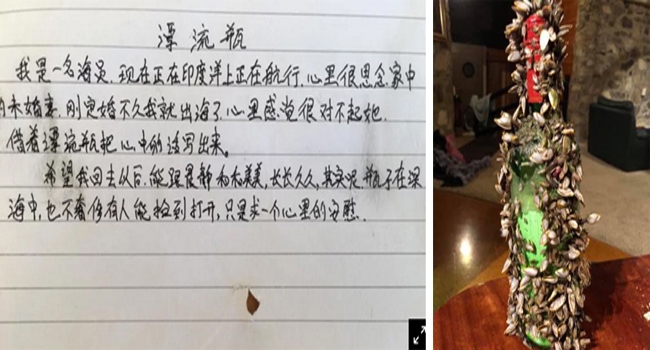 漂流瓶
我是一名海员,现在正在印度洋上正在航行,心里很思念家中
的未婚妻,刚定婚不久我就出海了,心里感觉很对不起她.
借着漂流瓶把心中的话写出来。
希望我回去以后,能跟晨静和和美美,长长久久,其实呢,瓶子在深
海中,也不奢侈有人能捡到打开,只是求一个心里的安慰.